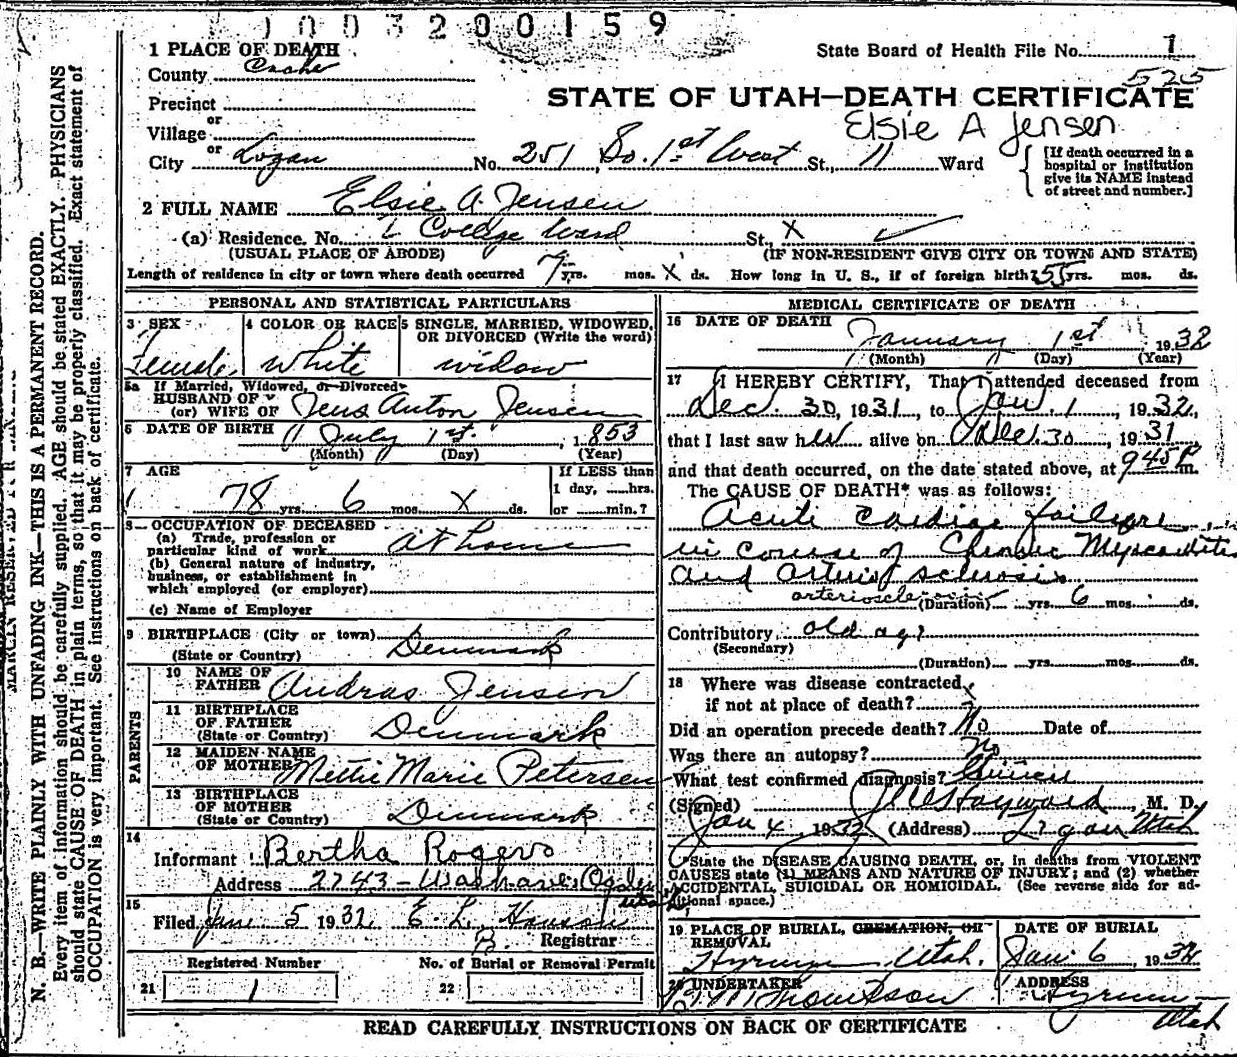 1003200159
1 PLACE OF DEATH
State Board of Health File No. 1
County Cache
525
Precinct
STATE OF UTAH—DEATH CERTIFICATE
or
Village
Elsie A Jensen
or
City Logan No. 251 So. 1st West St., 11 Ward
[If death occurred in a
hospital or institution
give its NAME instead
of street and number.]
2 FULL NAME Elsie A. Jensen
(a) Residence. No. College Ward St., X
(USUAL PLACE OF ABODE) (IF NON-RESIDENT GIVE CITY OR TOWN AND STATE)
Length of residence in city or town where death occurred 7 yrs. mos. X ds. How long in U. S., if of foreign birth? 55 yrs. mos. ds.
PERSONAL AND STATISTICAL PARTICULARS
3 SEX
Female
4 COLOR OR RACE
White
5 SINGLE, MARRIED, WIDOWED,
OR DIVORCED (Write the word)
widow
5a If Married, Widowed, or Divorced
HUSBAND OF
(or) WIFE OF Jens Anton Jensen
6 DATE OF BIRTH July 1st, 1853
(Month) (Day) (Year)
7 AGE
78 yrs. 6 mos. X ds.
If LESS than
1 day, ......hrs.
or ......min.?
8 OCCUPATION OF DECEASED
(a) Trade, profession or
particular kind of work at home
(b) General nature of industry,
business, or establishment in
which employed (or employer)
(c) Name of Employer
9 BIRTHPLACE (City or town)
(State or Country) Denmark
PARENTS
10 NAME OF
FATHER Andras Jensen
11 BIRTHPLACE
OF FATHER
(State or Country) Denmark
12 MAIDEN NAME
OF MOTHER Mettie Marie Petersen
13 BIRTHPLACE
OF MOTHER
(State or Country) Denmark
14
Informant Bertha Rogers
Address 2743 - Wash ave. Ogden
Utah
15
Filed Jan 5 1932 E. L. Hanson
Registrar
Registered Number No. of Burial or Removal Permit
21 1 22
MEDICAL CERTIFICATE OF DEATH
16 DATE OF DEATH January 1st 1932
(Month) (Day) (Year)
17 I HEREBY CERTIFY, That I attended deceased from
Dec. 30, 1931, to Jan. 1, 1932,
that I last saw her alive on Dec. 30, 1931
and that death occurred, on the date stated above, at 945 P m.
The CAUSE OF DEATH* was as follows:
Acute cardiac failure
in course of Chronic Myocarditis
and arterio sclerosis
arteriosclerosis
(Duration) yrs. 6 mos. ds.
Contributory old age
(Secondary)
(Duration) yrs. mos. ds.
18 Where was disease contracted
if not at place of death? X
Did an operation precede death? No Date of
Was there an autopsy? No
What test confirmed diagnosis? Clinical
(Signed) J C Hayward, M. D.
Jan 4 1932 (Address) Logan Utah
*State the DISEASE CAUSING DEATH, or, in deaths from VIOLENT
CAUSES state (1) MEANS AND NATURE OF INJURY; and (2) whether
ACCIDENTAL, SUICIDAL OR HOMICIDAL. (See reverse side for ad-
ditional space.)
19 PLACE OF BURIAL, CREMATION, OR
REMOVAL
Hyrum Utah.
DATE OF BURIAL
Jan. 6, 1932
20 UNDERTAKER
Thompson
ADDRESS
Hyrum
Utah
READ CAREFULLY INSTRUCTIONS ON BACK OF CERTIFICATE
N. B.—WRITE PLAINLY WITH UNFADING INK—THIS IS A PERMANENT RECORD.
Every item of information should be carefully supplied. AGE should be stated EXACTLY. PHYSICIANS
should state CAUSE OF DEATH in plain terms, so that it may be properly classified. Exact statement of
OCCUPATION is very important. See instructions on back of certificate.